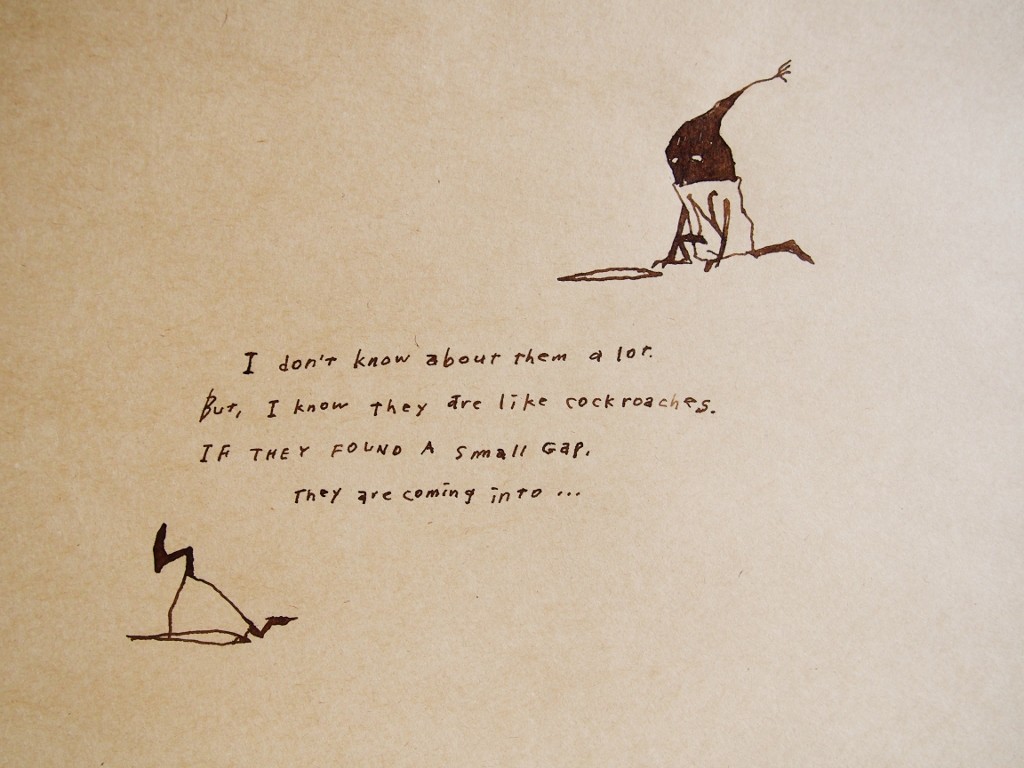 I don't know about them a lot.
But, I know they are like cockroaches.
IF THEY FOUND A small GAP,
They are coming into ...